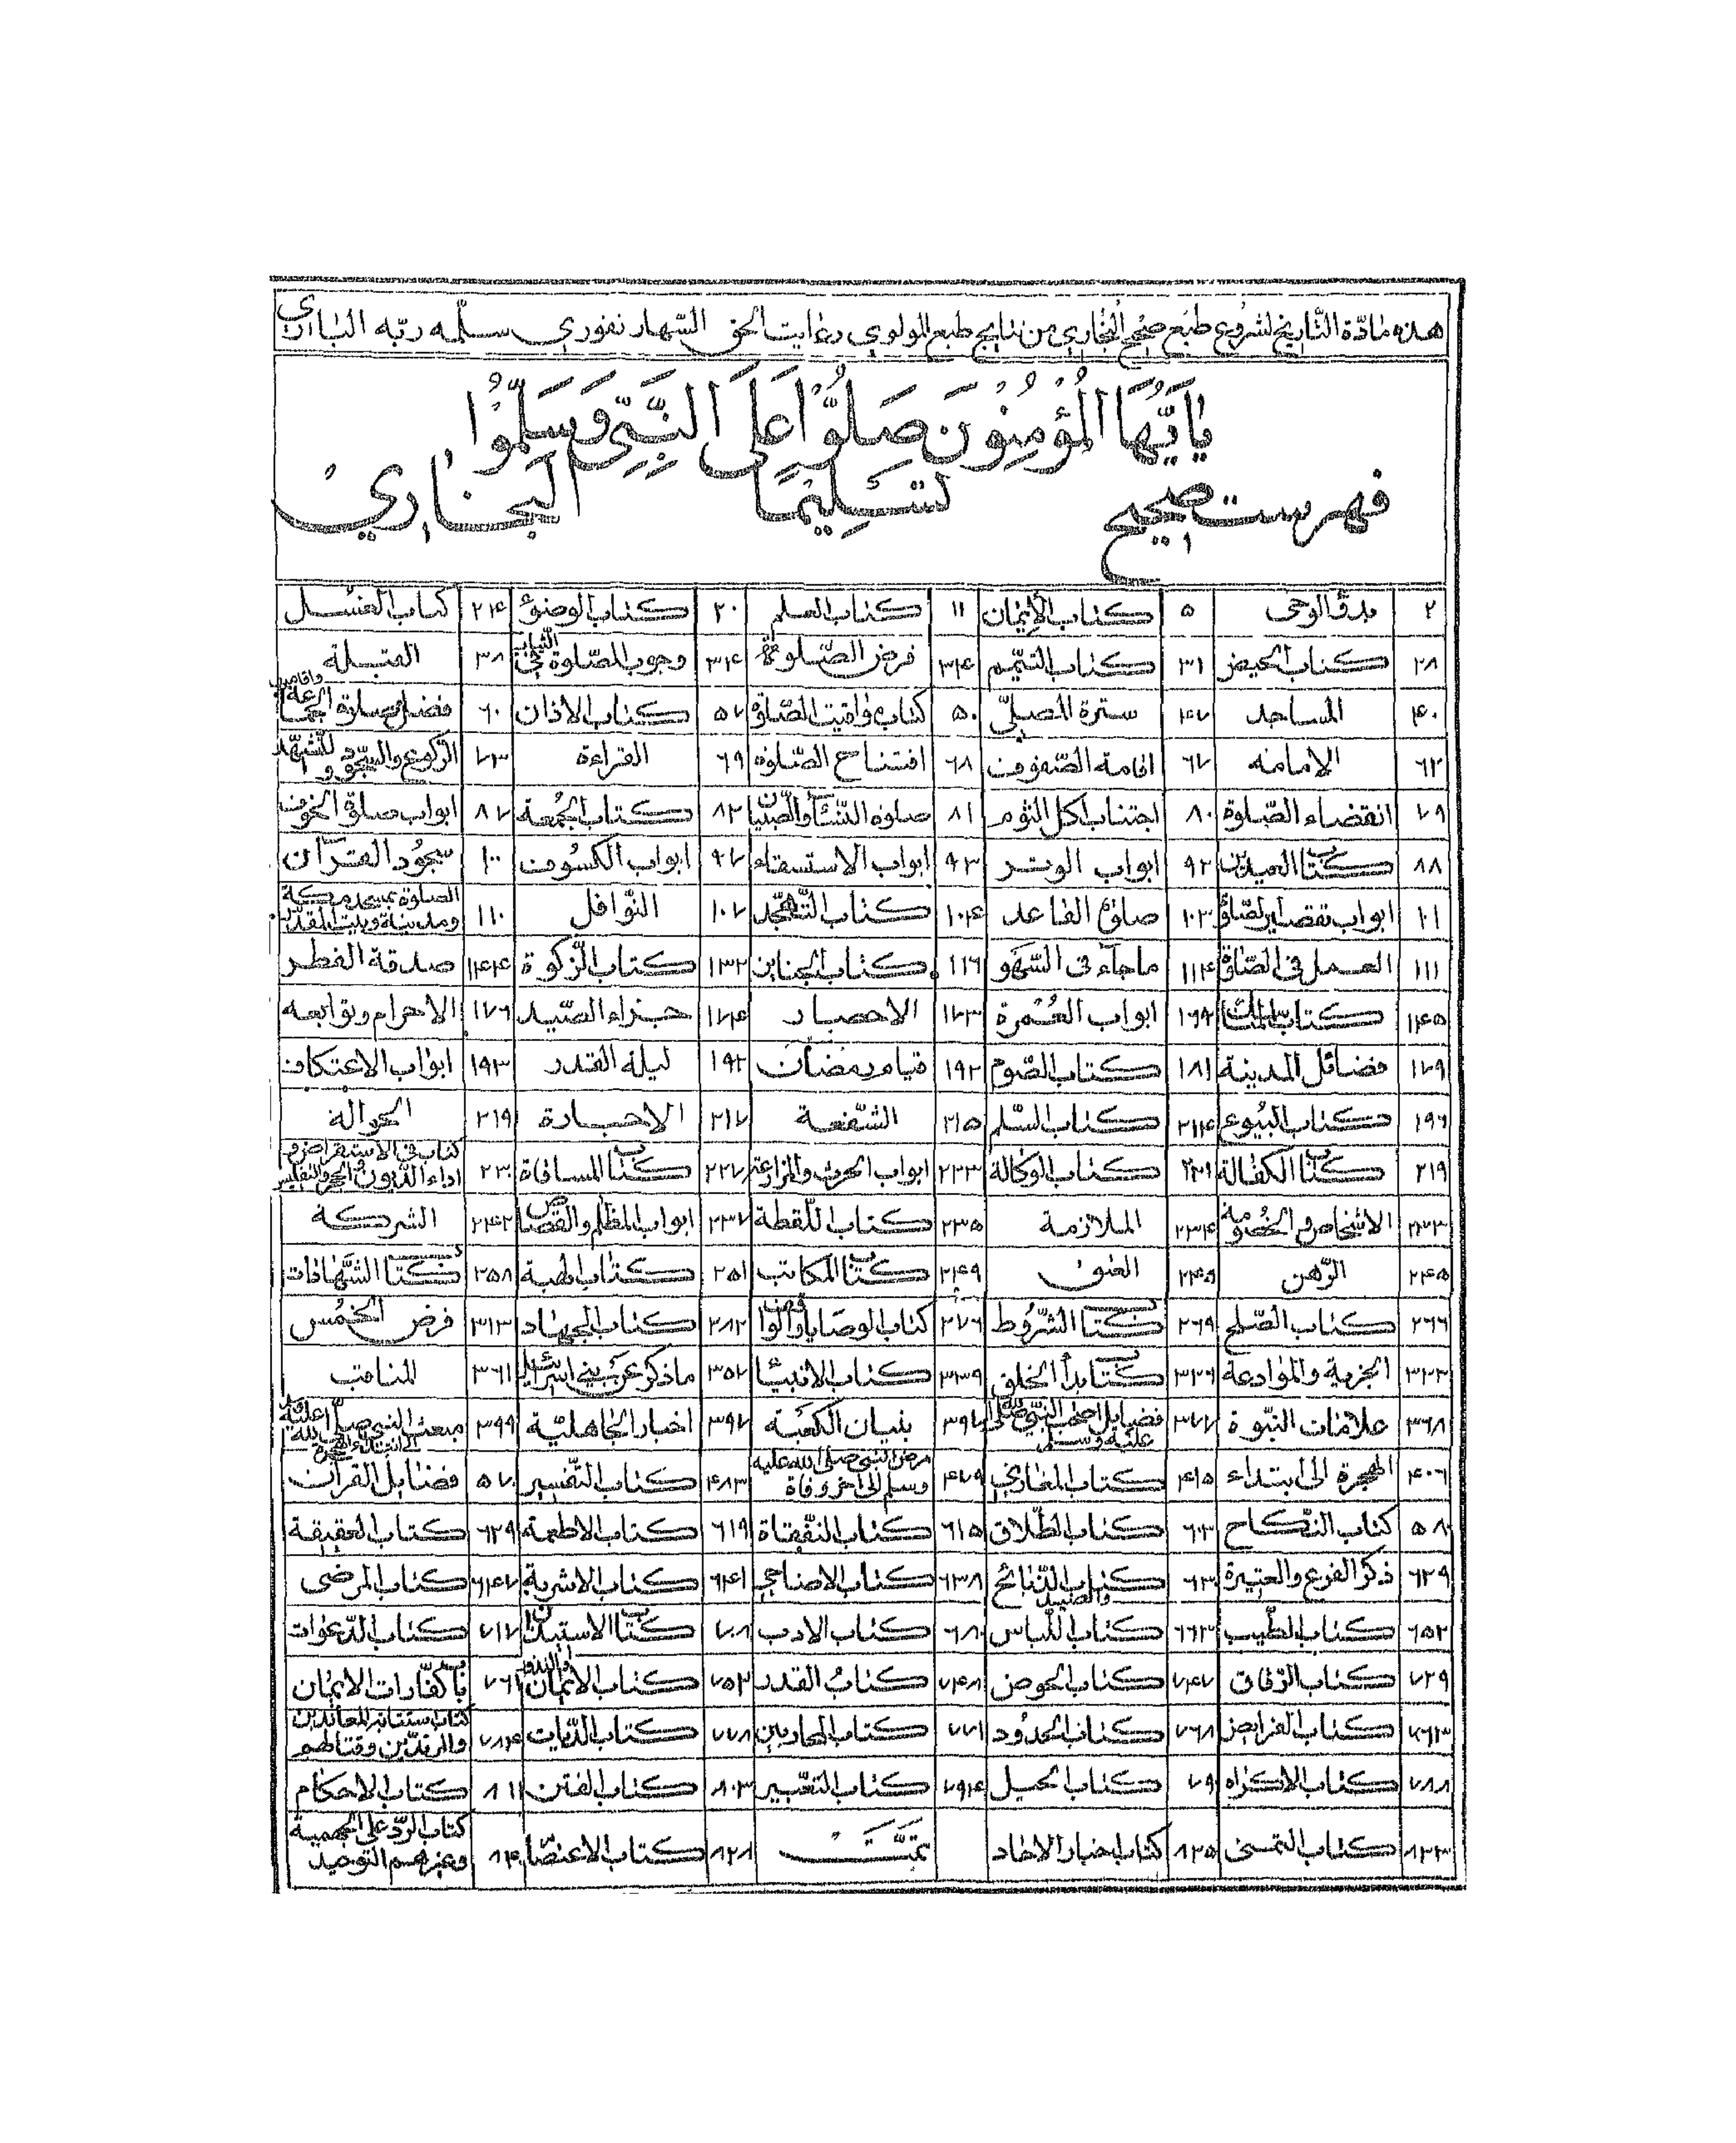 هذه مادّة التّاريخ لشروع طبع صحيح البُخاري من نتايج طبع المولوي رعايت الحق السّهارنفوري سلّمه ربّه الباري
يَا اَيُّهَا الْمُؤْمِنُوْنَ صَلُّوْا عَلَى النَّبِيِّ وَسَلِّمُوْا
تَسْلِيْمًا
فهرست صحيح البخاري
۲ بدؤ الوحى ۵ كتاب الإيمان ۱۱ كتاب العلم ۲۰ كتاب الوضوء ۲۴ كتاب الغسل
۲۸ كتاب الحيض ۳۱ كتاب التيمّم ۳۴ فرض الصّلوة ۳۴ وجوب الصّلوة فى الثياب ۳۸ القبلة
۴۰ المساجد ۴۷ سترة المصلّي ۵۰ كتاب مواقيت الصّلوة ۵۷ كتاب الاذان ۶۰ فضل صلوة الجماعة واقامت
۶۲ الامامه ۶۷ اقامة الصّفوف ۶۸ افتتاح الصّلوة ۶۹ القراءة ۷۳ الرّكوع والسّجود والتّشهّد
۷۹ انقضاء الصّلوة ۸۰ اجتناب اكل الثوم ۸۱ صلوة النّساء والصّبيان ۸۲ كتاب الجُمعة ۸۷ ابواب صلوة الخوف
۸۸ كتاب العيدين ۹۲ ابواب الوتر ۹۳ ابواب الاستسقاء ۹۷ ابواب الكسوف ۱۰۰ سجُود القرآن
۱۰۱ ابواب تقصير الصّلوة ۱۰۳ صلوة القاعد ۱۰۴ كتاب التّهجّد ۱۰۷ النّوافل ۱۱۰ الصلوة بمسجد مكة ومدينة وبيت المقدّس
۱۱۱ العمل فى الصّلوة ۱۱۴ ماجاء فى السّهو ۱۱۶ كتاب الجنايز ۱۳۲ كتاب الزّكوة ۱۴۴ صدقة الفطر
۱۴۵ كتاب المناسك ۱۶۹ ابواب العُمرة ۱۷۳ الاحصار ۱۷۴ جزاء الصّيد ۱۷۶ الاحرام وتوابعه
۱۷۹ فضائل المدينة ۱۸۱ كتاب الصّوم ۱۹۲ قيام رمضان ۱۹۲ ليلة القدر ۱۹۳ ابواب الاعتكاف
۱۹۶ كتاب البيُوع ۲۱۴ كتاب السّلم ۲۱۵ الشّفعة ۲۱۷ الاجارة ۲۱۹ الحوالة
۲۱۹ كتاب الكفالة ۲۲۱ كتاب الوكالة ۲۲۳ ابواب الحرث والمزارعة ۲۲۷ كتاب المساقاة ۲۳۰ كتاب فى الاستقراض و اداء الدّيون والحجر والتفليس
۲۳۳ الاشخاص والخُصومة ۲۳۴ الملازمة ۲۳۵ كتاب اللّقطة ۲۳۷ ابواب المظالم والقصاص ۲۴۲ الشركة
۲۴۵ الرّهن ۲۴۵ العتق ۲۴۹ كتاب المكاتب ۲۵۱ كتاب الهبة ۲۵۸ كتاب الشّهادات
۲۶۶ كتاب الصّلح ۲۶۹ كتاب الشّروط ۲۷۶ كتاب الوصايا والوقف ۲۸۲ كتاب الجهاد ۳۱۳ فرض الخمُس
۳۲۳ الجزية والموادعة ۳۲۶ كتاب بدأ الخلق ۳۳۹ كتاب الانبياء ۳۵۲ ماذكر عن بنى اسرائيل ۳۶۱ المناقب
۳۶۸ علامات النبّوة ۳۷۷ فضايل اصحاب النبى صلى الله عليه وسلم ۳۹۷ بنيان الكعبة ۳۹۷ اخبار الجاهليّة ۳۹۹ مبعث النبى صلى الله عليه
۴۰۶ الهجرة الى ابتداء ۴۱۵ كتاب المغازي ۴۷۹ مرض النبى صلى الله عليه وسلم الى اخر وفاة ۴۸۳ كتاب التّفسير ۵۷۰ فضايل القرآن
۵۸۰ كتاب النّكاح ۶۰۳ كتاب الطّلاق ۶۱۵ كتاب النّفقاة ۶۱۹ كتاب الاطعمة ۶۲۹ كتاب العقيقة
۶۲۹ ذكر الفرع والعتيرة ۶۳۰ كتاب الذّبائح والصّيد ۶۳۸ كتاب الاضاحي ۶۴۱ كتاب الاشربة ۶۴۷ كتاب المرضى
۶۵۲ كتاب الطّيب ۶۶۳ كتاب اللّباس ۶۸۰ كتاب الادب ۷۰۸ كتاب الاستيذان ۷۱۷ كتاب الدّعوات
۷۲۹ كتاب الرّقاق ۷۴۷ كتاب الحوض ۷۴۸ كتابُ القدر ۷۵۳ كتاب الايمان والنذور ۷۶۱ باب كفّارات الايمان
۷۶۳ كتاب الفرايض ۷۶۸ كتاب الحدُود ۷۷۱ كتاب المحاربين ۷۷۸ كتاب الدّيات ۷۸۴ كتاب استتابة المعاندين والمرتدّين وقتالهم
۷۸۸ كتاب الاكراه ۷۹۰ كتاب الحيل ۷۹۴ كتاب التعبير ۸۰۳ كتاب الفتن ۸۱۱ كتاب الاحكام
۸۲۳ كتاب التمنى ۸۲۵ كتاب اخبار الاحاد تمّت ۸۲۸ كتاب الاعتصام ۸۴۰ كتاب الرّد على الجهمية وغيرهم التوحيد